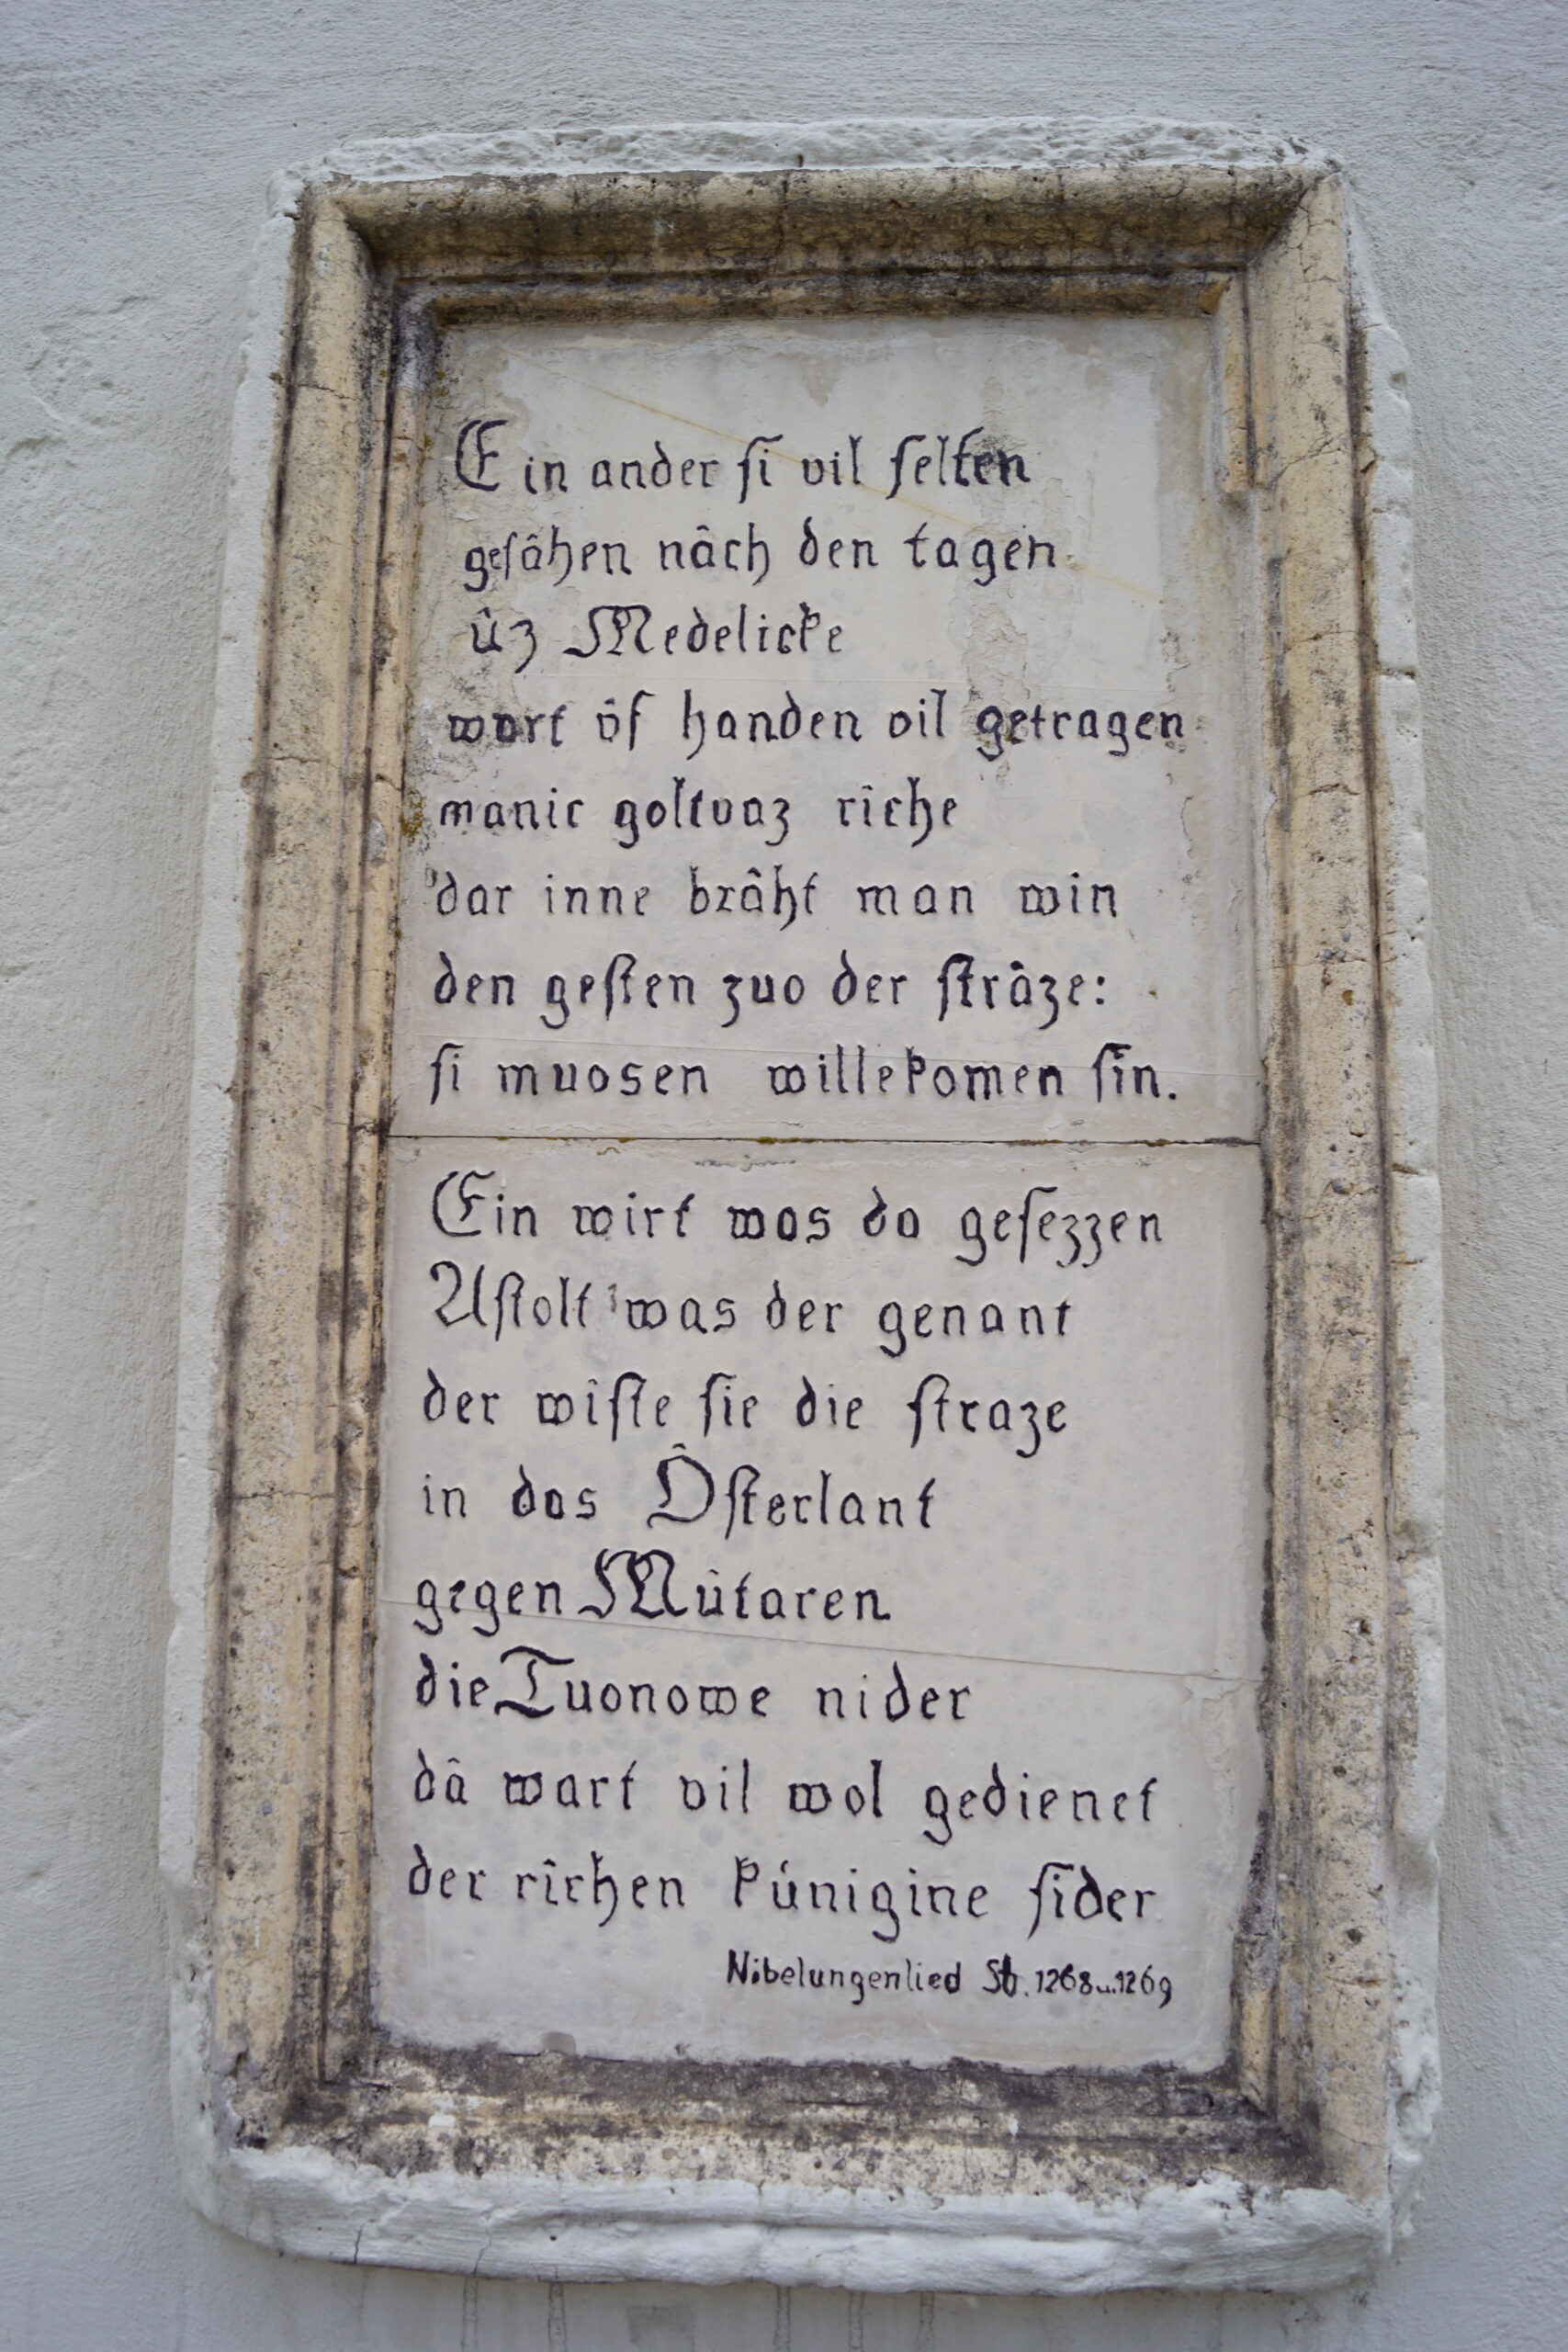 Ein ander si vil selten
gesâhen nâch den tagen
ûz Medelicke
wart ûf handen vil getragen
manic goltvaz rîche
dar inne brâht man win
den gesten zuo der strâze:
si muosen willekomen sîn.
Ein wirt was da gesezzen
Astolt was der genant
der wîste sie die straze
in das Ôsterlant
gegen Mûtaren
die Tuonowe nider
dâ wart vil wol gedienet
der rîchen kúnigine sider
Nibelungenlied St. 1268 u. 1269